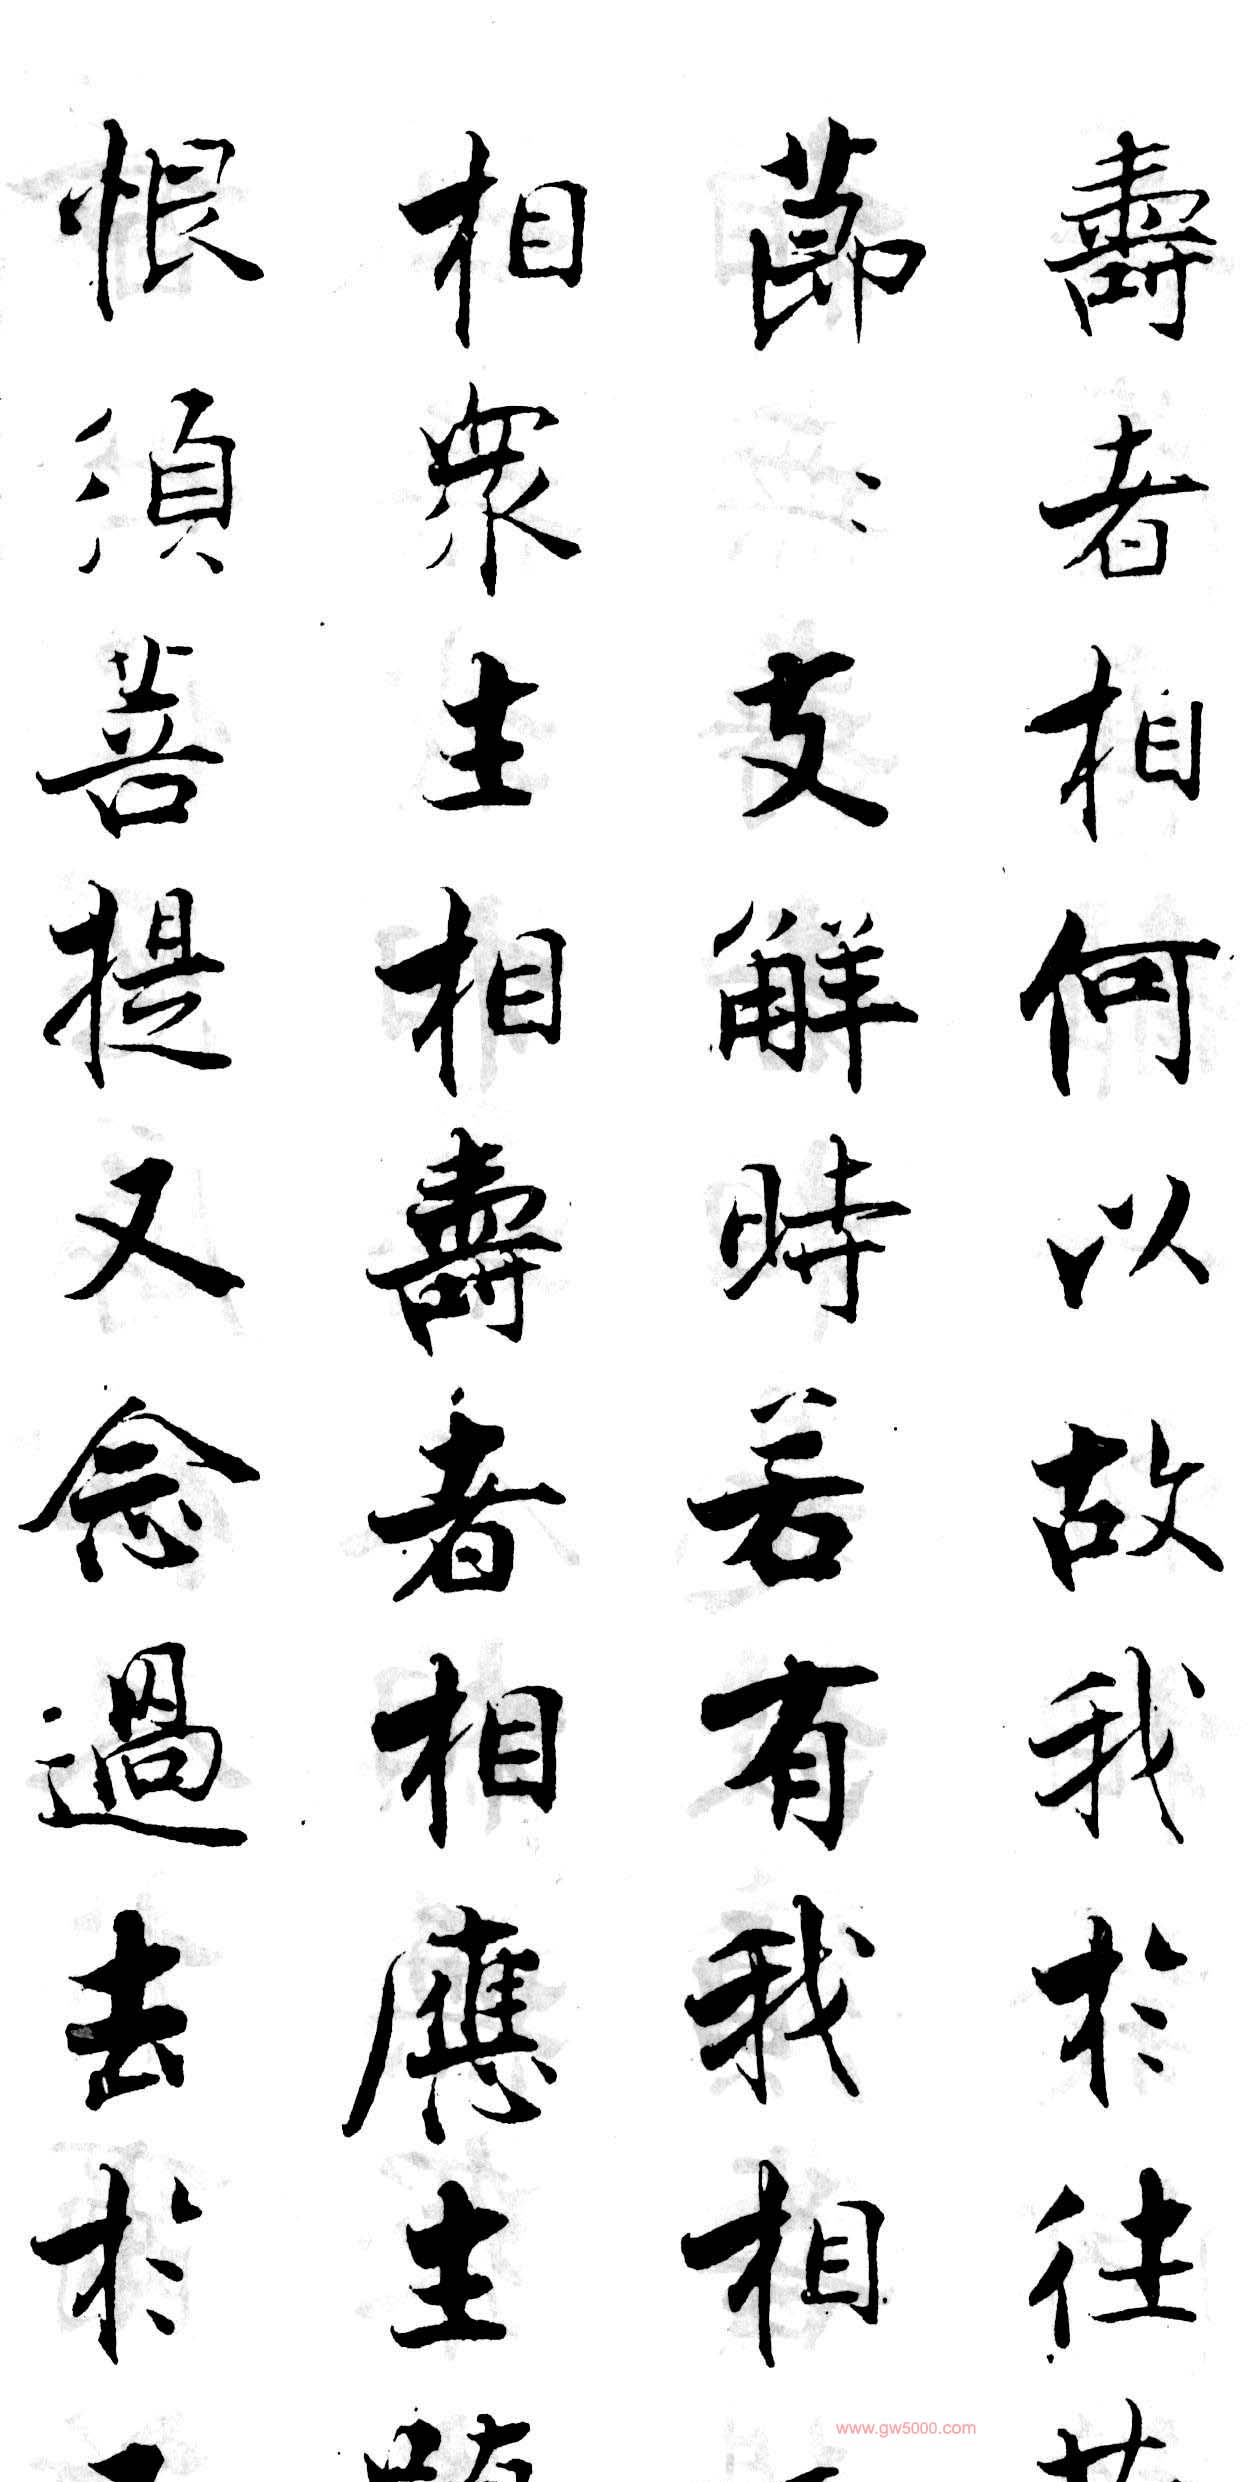 壽者相何以故我於往
節〻支解時若有我相
相衆生相壽者相應生
恨須菩提又念過去於
www.gw5000.com